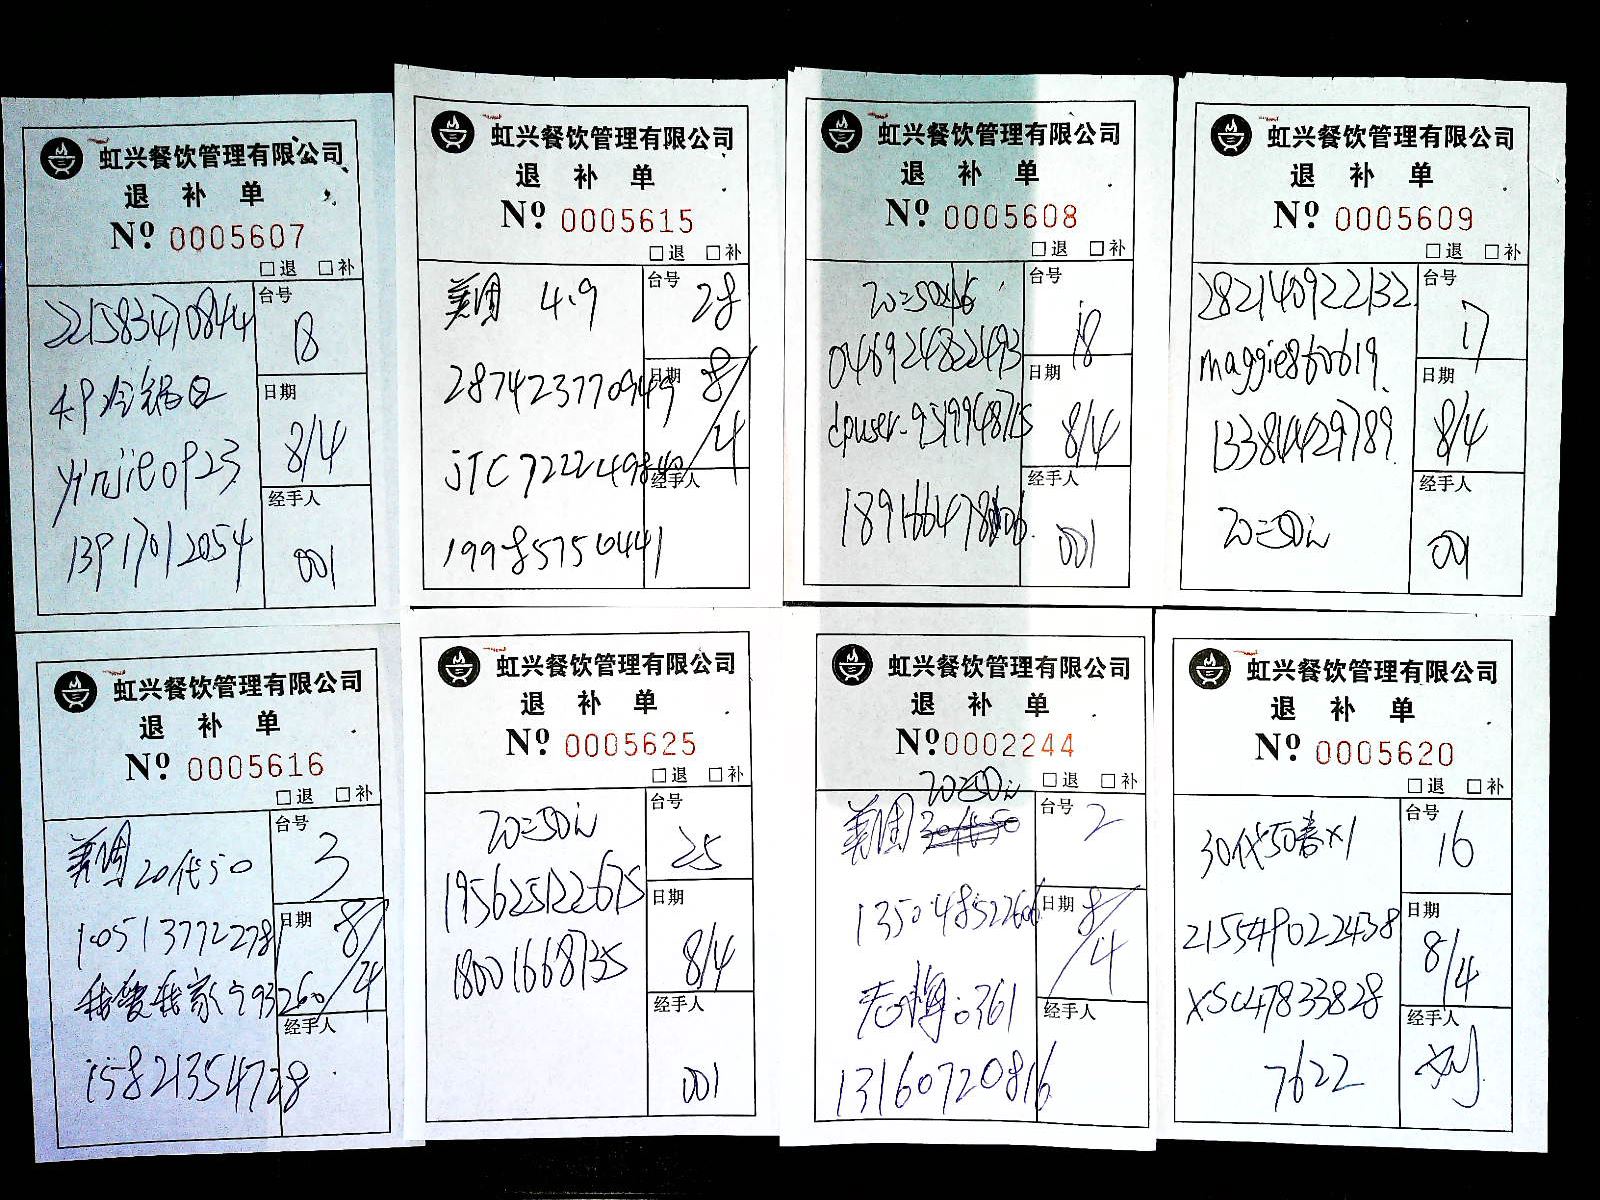 虹兴餐饮管理有限公司
退 补 单
Nº 0005607
□退 □补
221583470844
台号
18
yinjie0923
日期
8/4
13917012054
经手人
001
虹兴餐饮管理有限公司
退 补 单
Nº 0005615
□退 □补
美团 4.9
台号
28
287423770949
日期
8/4
JTC722249840
经手人
19985750441
虹兴餐饮管理有限公司
退 补 单
Nº 0005608
□退 □补
台号
18
046924822493
日期
8/4
dpuser-9519948715
经手人
001
虹兴餐饮管理有限公司
退 补 单
Nº 0005609
□退 □补
282140922132
台号
17
maggie860619
日期
8/4
13384429789
经手人
001
虹兴餐饮管理有限公司
退 补 单
Nº 0005616
□退 □补
美团 20代50
台号
3
105137722781
日期
8/4
我爱我家宁93260
经手人
15821354728
虹兴餐饮管理有限公司
退 补 单
Nº 0005625
□退 □补
台号
25
195625122675
日期
8/4
18001668735
经手人
001
虹兴餐饮管理有限公司
退 补 单
Nº 0002244
□退 □补
美团 30代50
台号
2
135048522606
日期
8/4
经手人
13160720816
虹兴餐饮管理有限公司
退 补 单
Nº 0005620
□退 □补
30代50春x1
台号
16
215549022438
日期
8/4
XSU47833828
经手人
刘
7622